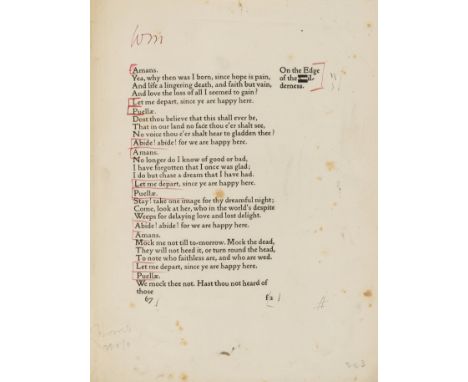 Wm
Amans.
Yea, why then was I born, since hope is pain,
And life a lingering death, and faith but vain,
And love the loss of all I seemed to gain?
Let me depart, since ye are happy here.
Puellæ.
Dost thou believe that this shall ever be,
That in our land no face thou e'er shalt see,
No voice thou e'er shalt hear to gladden thee?
Abide! abide! for we are happy here.
Amans.
No longer do I know of good or bad,
I have forgotten that I once was glad;
I do but chase a dream that I have had.
Let me depart, since ye are happy here.
Puellæ.
Stay! take one image for thy dreamful night;
Come, look at her, who in the world's despite
Weeps for delaying love and lost delight.
Abide! abide! for we are happy here.
Amans.
Mock me not till to-morrow. Mock the dead,
They will not heed it, or turn round the head,
To note who faithless are, and who are wed.
Let me depart, since ye are happy here.
Puellæ.
We mock thee not. Hast thou not heard of
those
67 f2
On the Edge
of the
derness.
#